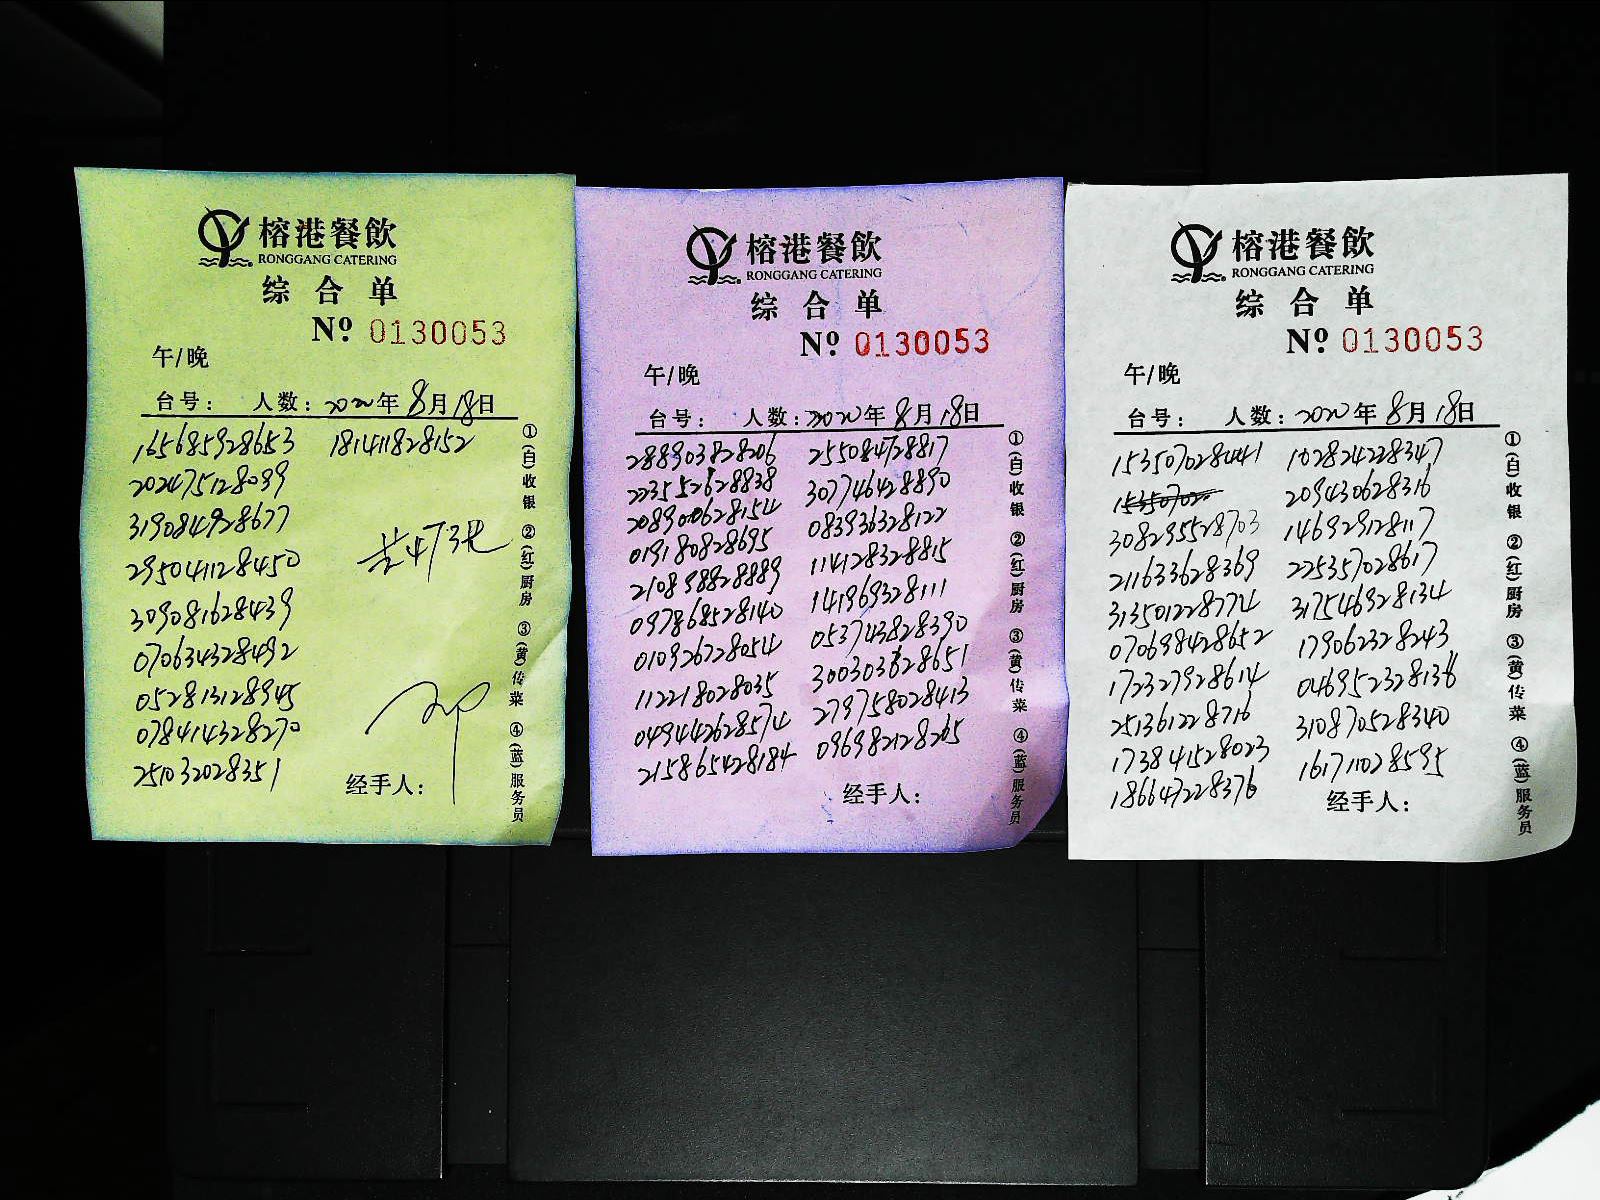 榕港餐飲
RONGGANG CATERING
综合单
Nº 0130053
午/晚
台号： 人数：2020年8月18日
165685928653 181411828152
202475128099
319084928677
295041128450
共47张
309081628439
070634328492
052813128945
078414328270
251032028351
经手人：
①(白)收银 ②(红)厨房 ③(黄)传菜 ④(蓝)服务员
榕港餐飲
RONGGANG CATERING
综合单
Nº 0130053
午/晚
台号： 人数：2020年8月18日
288903828206 255084728817
223552628838 307746428890
208900628154 083936328122
019180828695 114128328815
210898828889 141969328111
097868528140 053743828390
010926728054 300303628651
112218028035 279758028413
049442628574 096982128265
215865428184
经手人：
①(白)收银 ②(红)厨房 ③(黄)传菜 ④(蓝)服务员
榕港餐飲
RONGGANG CATERING
综合单
Nº 0130053
午/晚
台号： 人数：2020年8月18日
153507028441 102824228347
15350702 209430628316
308295528703 146929128117
211633628369 225357028617
313501228774 317546928134
070698428652 179062328243
172327928614 046952328136
251361228716 310870528340
173841528023 161711028595
186647228376
经手人：
①(白)收银 ②(红)厨房 ③(黄)传菜 ④(蓝)服务员